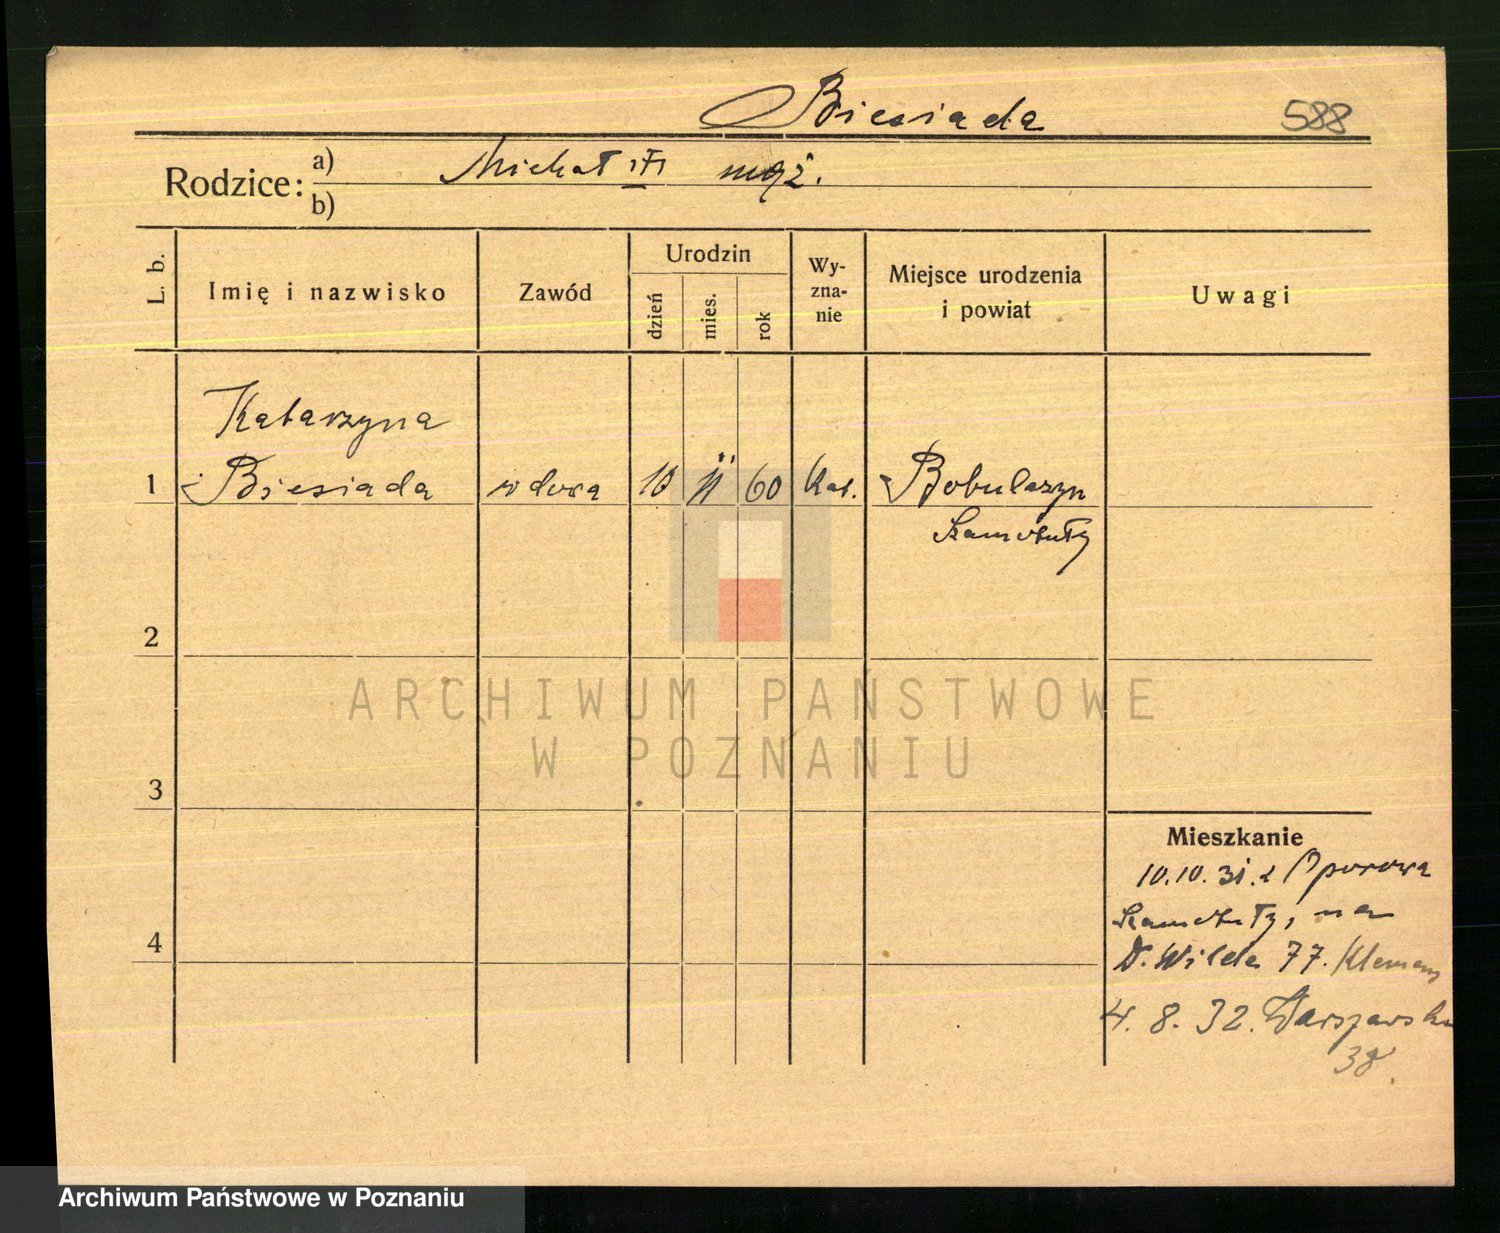 Biesiada
588
Rodzice:
a) Michał mąż.
b)
L. b.
Imię i nazwisko
Zawód
Urodzin
dzień
mies.
rok
Wy-
zna-
nie
Miejsce urodzenia
i powiat
Uwagi
Katarzyna
1 Biesiada wdowa 10 II 60 Kat. Bobulczyn
Szamotuły
2
3
4
Mieszkanie
10.10.31. z Oporowa
Szamotuły, na
D. Wilda 77.
4. 8. 32. Warszawska
38.
ARCHIWUM PAŃSTWOWE
W POZNANIU
Archiwum Państwowe w Poznaniu